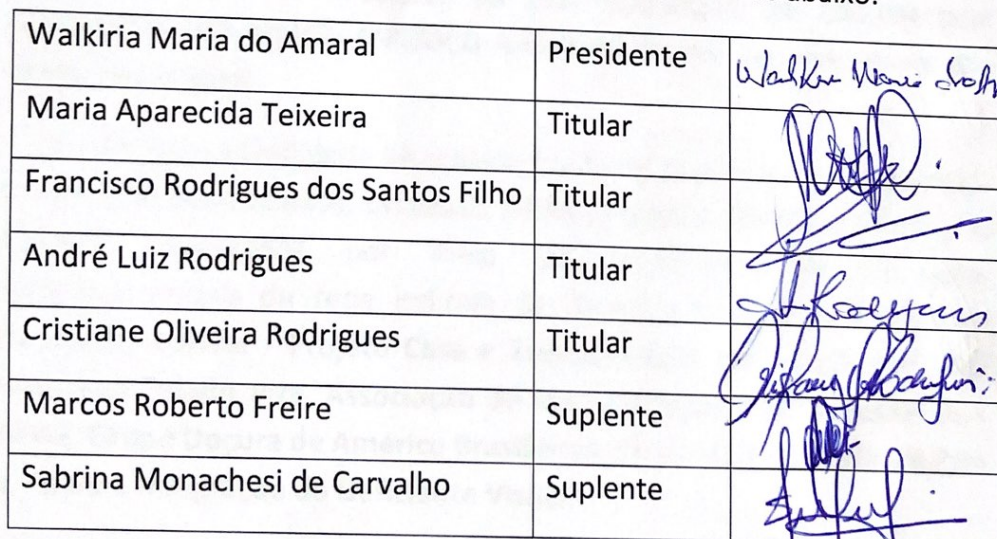 abaixo:
Walkiria Maria do Amaral Presidente
Maria Aparecida Teixeira Titular
Francisco Rodrigues dos Santos Filho Titular
André Luiz Rodrigues Titular A. Rodrigues
Cristiane Oliveira Rodrigues Titular
Marcos Roberto Freire Suplente
Sabrina Monachesi de Carvalho Suplente